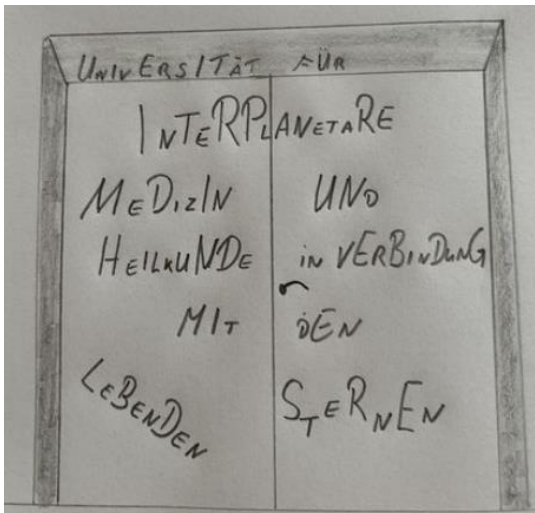 UNIVERSITÄT FÜR
INTERPLANETARE
MEDIZIN UND
HEILKUNDE IN VERBINDUNG
MIT DEN
LEBENDEN STERNEN